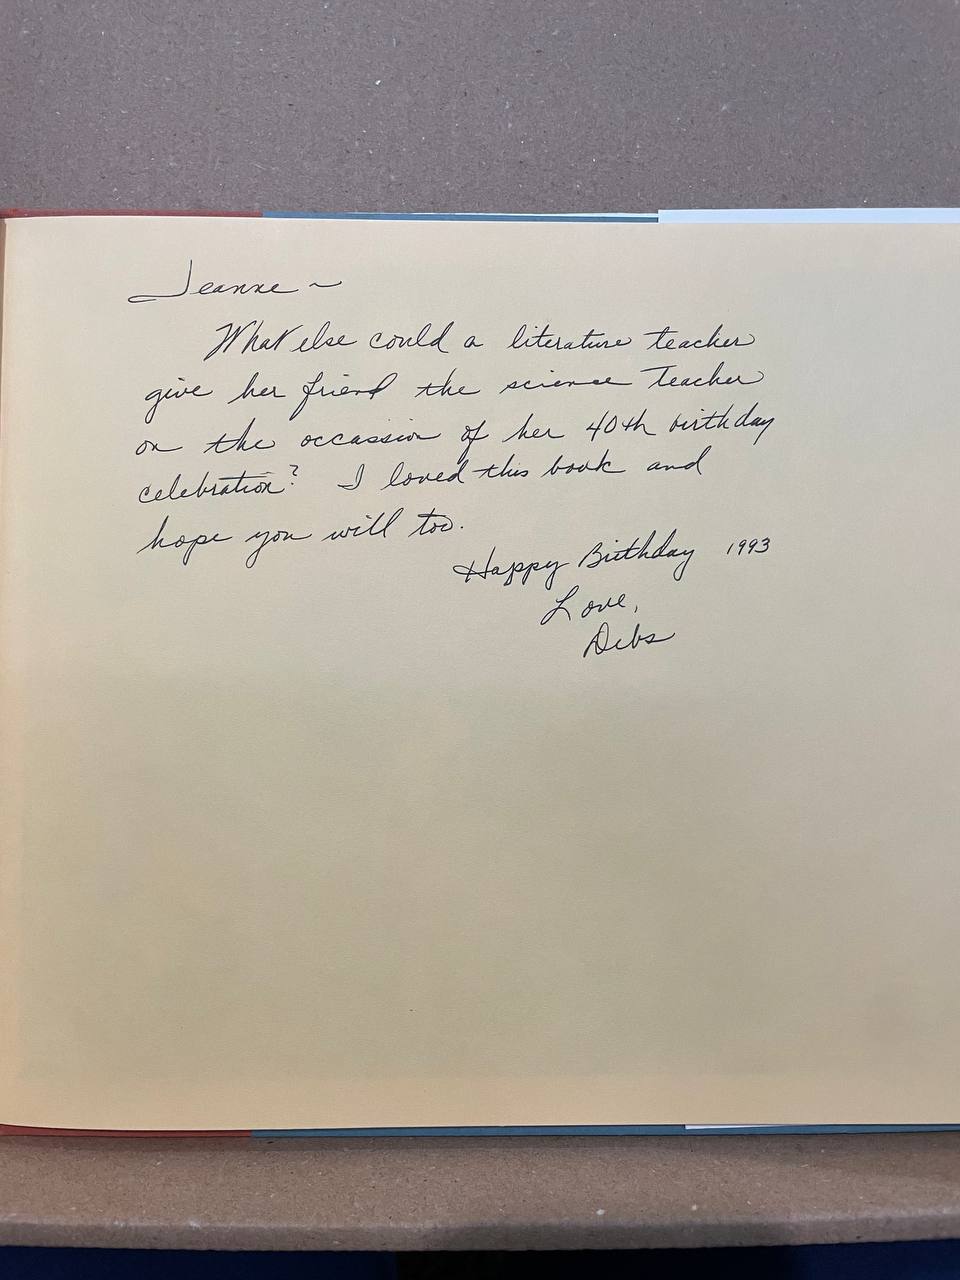 Jeanne ~
What else could a literature teacher
give her friend the science teacher
on the occassion of her 40th birthday
celebration? I loved this book and
hope you will too.
Happy Birthday 1993
Love,
Debs